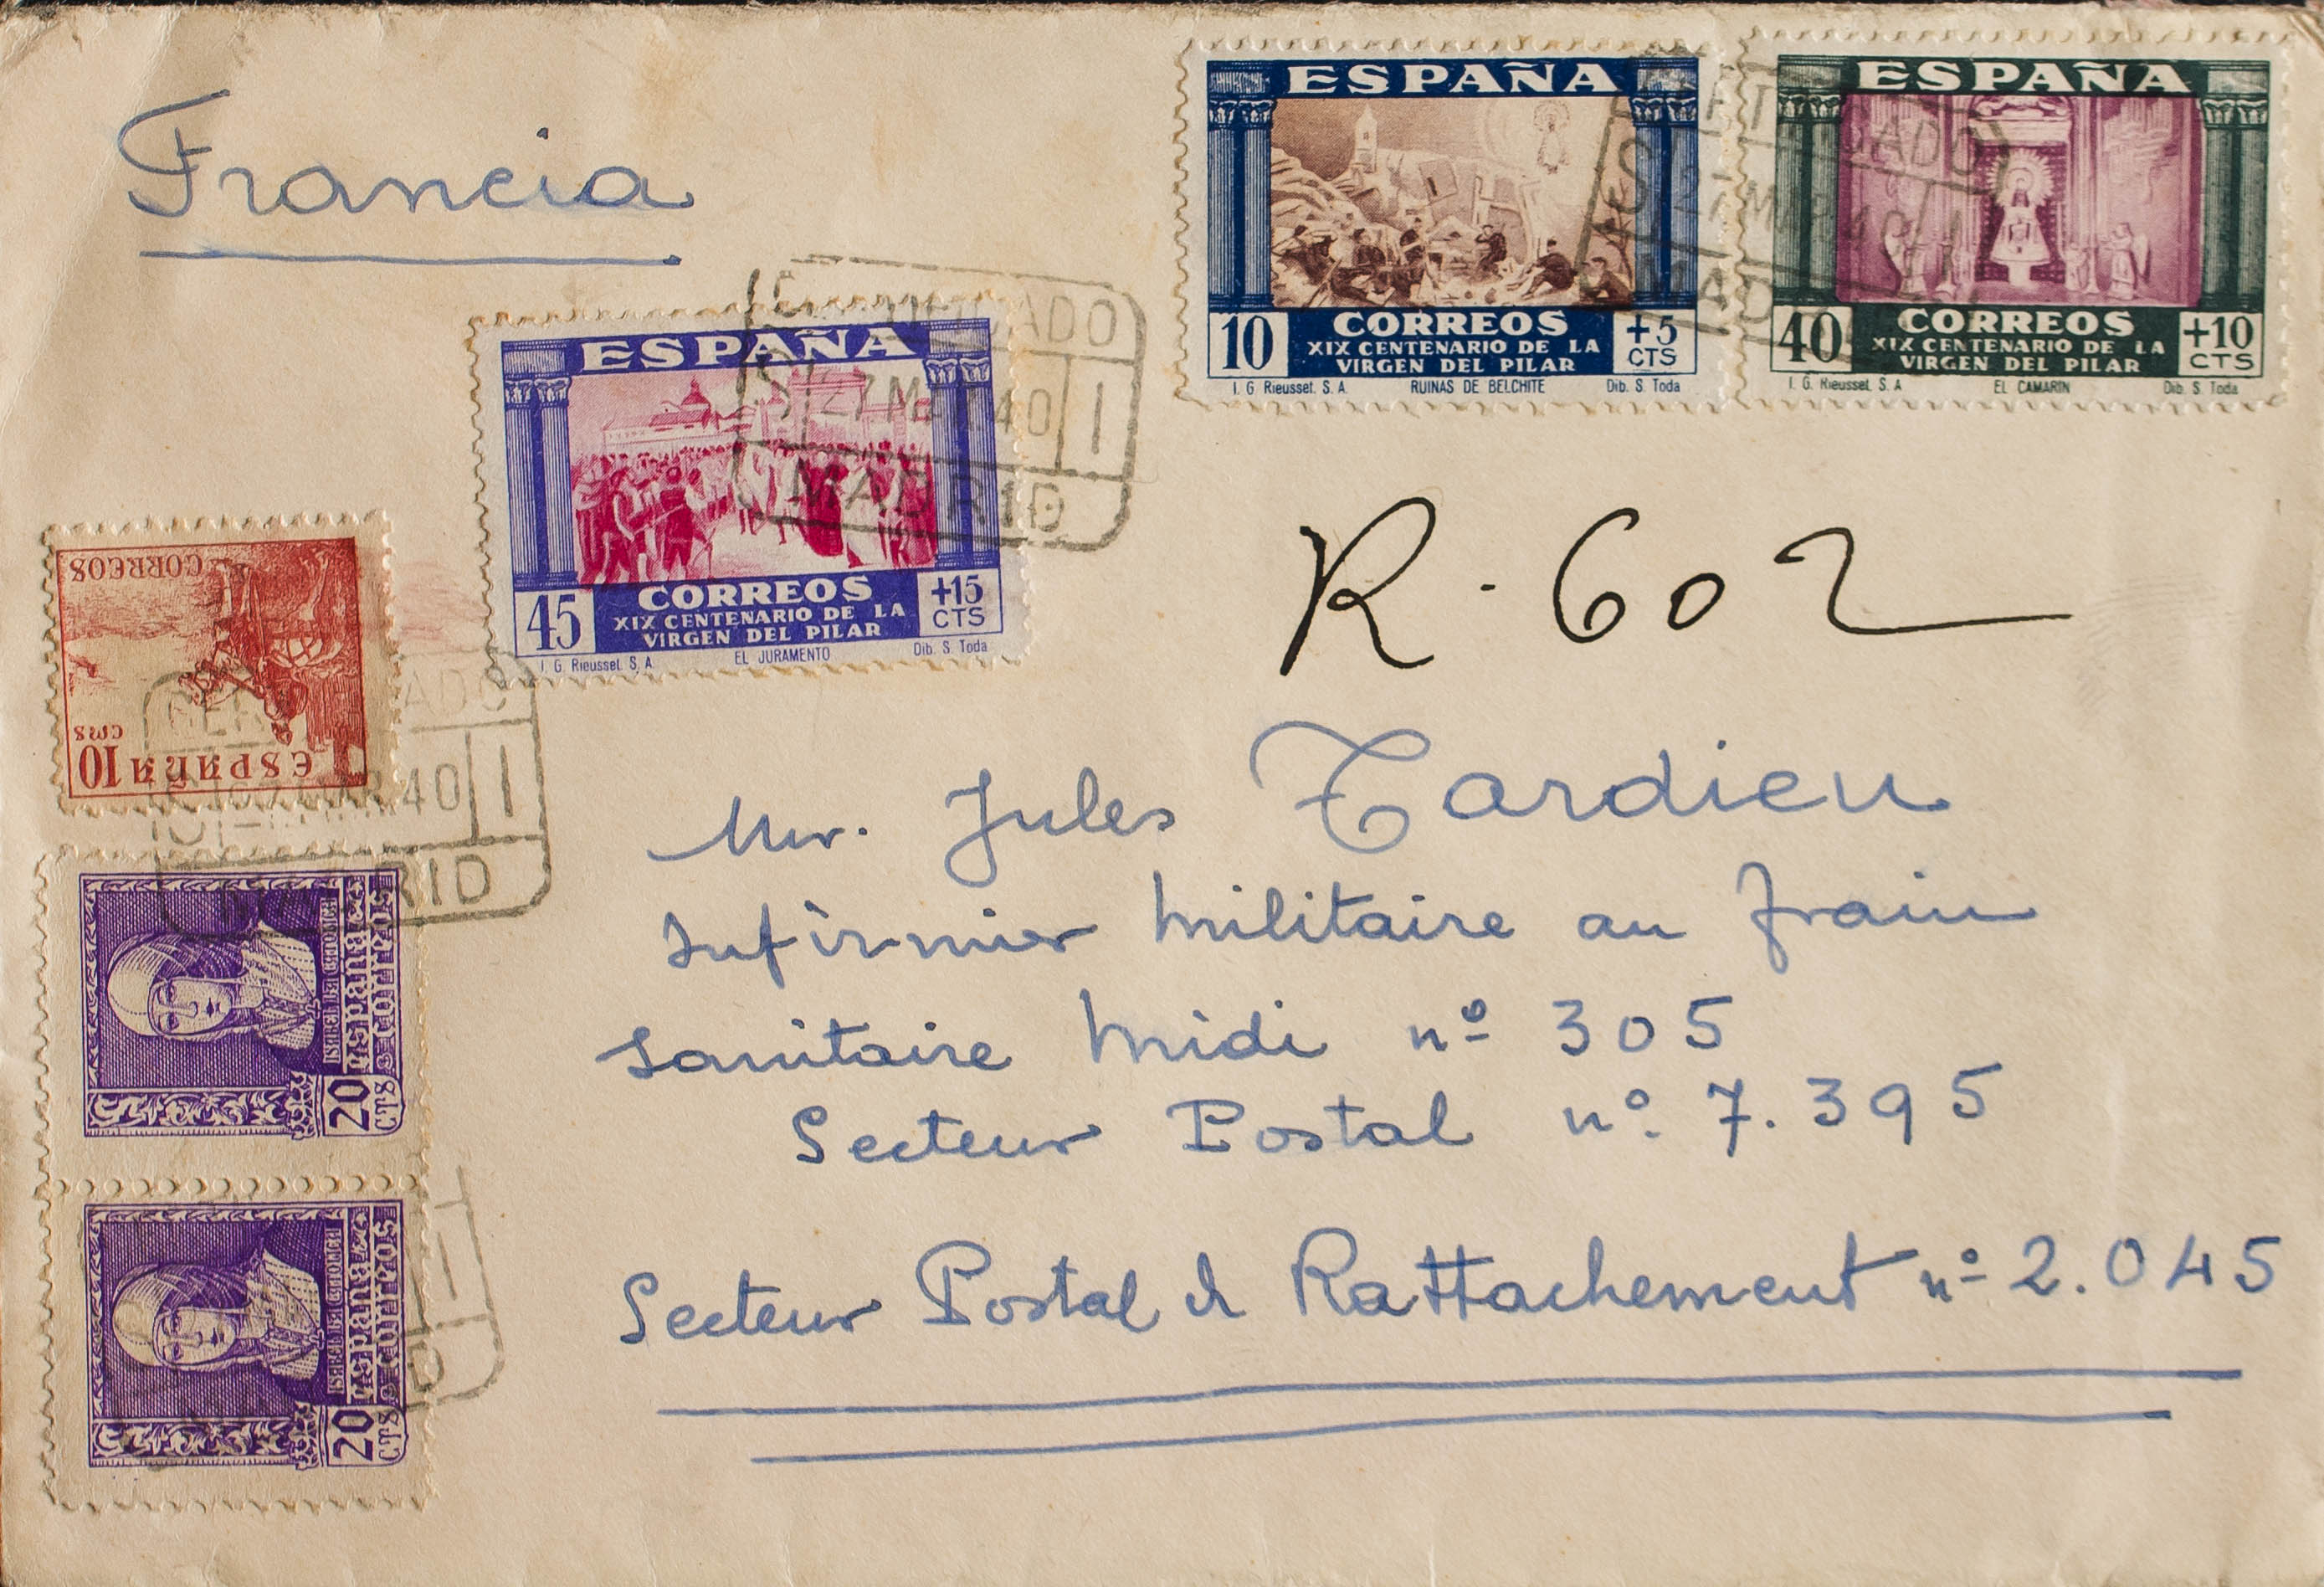 Francia
ESPAÑA
10
CORREOS
XIX CENTENARIO DE LA
VIRGEN DEL PILAR
+5
CTS
I. G. Rieusset. S. A. RUINAS DE BELCHITE Dib. S. Toda
ESPAÑA
40
CORREOS
XIX CENTENARIO DE LA
VIRGEN DEL PILAR
+10
CTS
I. G. Rieusset. S. A. EL CAMARIN Dib. S. Toda
27 MAR 40
ESPAÑA
45
CORREOS
XIX CENTENARIO DE LA
VIRGEN DEL PILAR
+15
CTS
I. G. Rieusset. S. A. EL JURAMENTO Dib. S. Toda
CERTIFICADO
27 MAR 40 1
MADRID
R. 602
CORREOS
10 CMS
ESPAÑA
CERTIFICADO
27 MAR 40 1
MADRID
ISABEL LA CATOLICA
España
correos
20 CTS
ISABEL LA CATOLICA
España
correos
20 CTS
Mr. Jules Tardieu
Infirmier Militaire au train
Sanitaire Midi nº 305
Secteur Postal nº 7.395
Secteur Postal de Rattachement nº 2.045